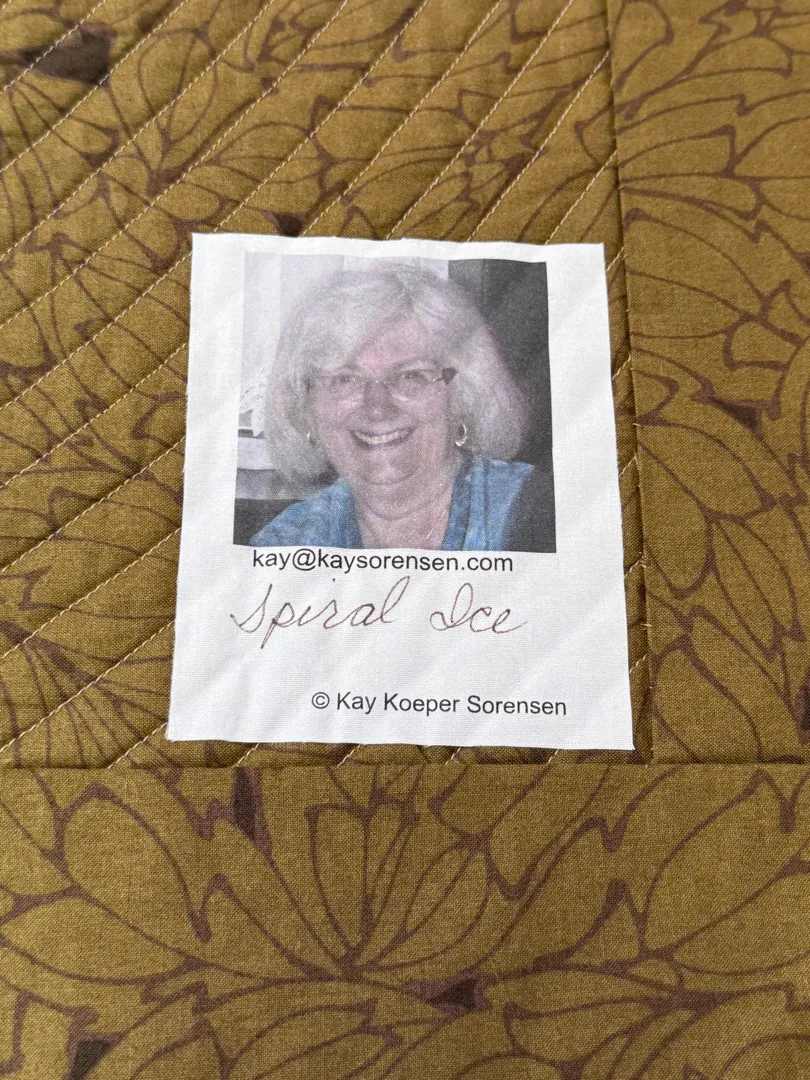 kay@kaysorensen.com
Spiral Ice
© Kay Koeper Sorensen